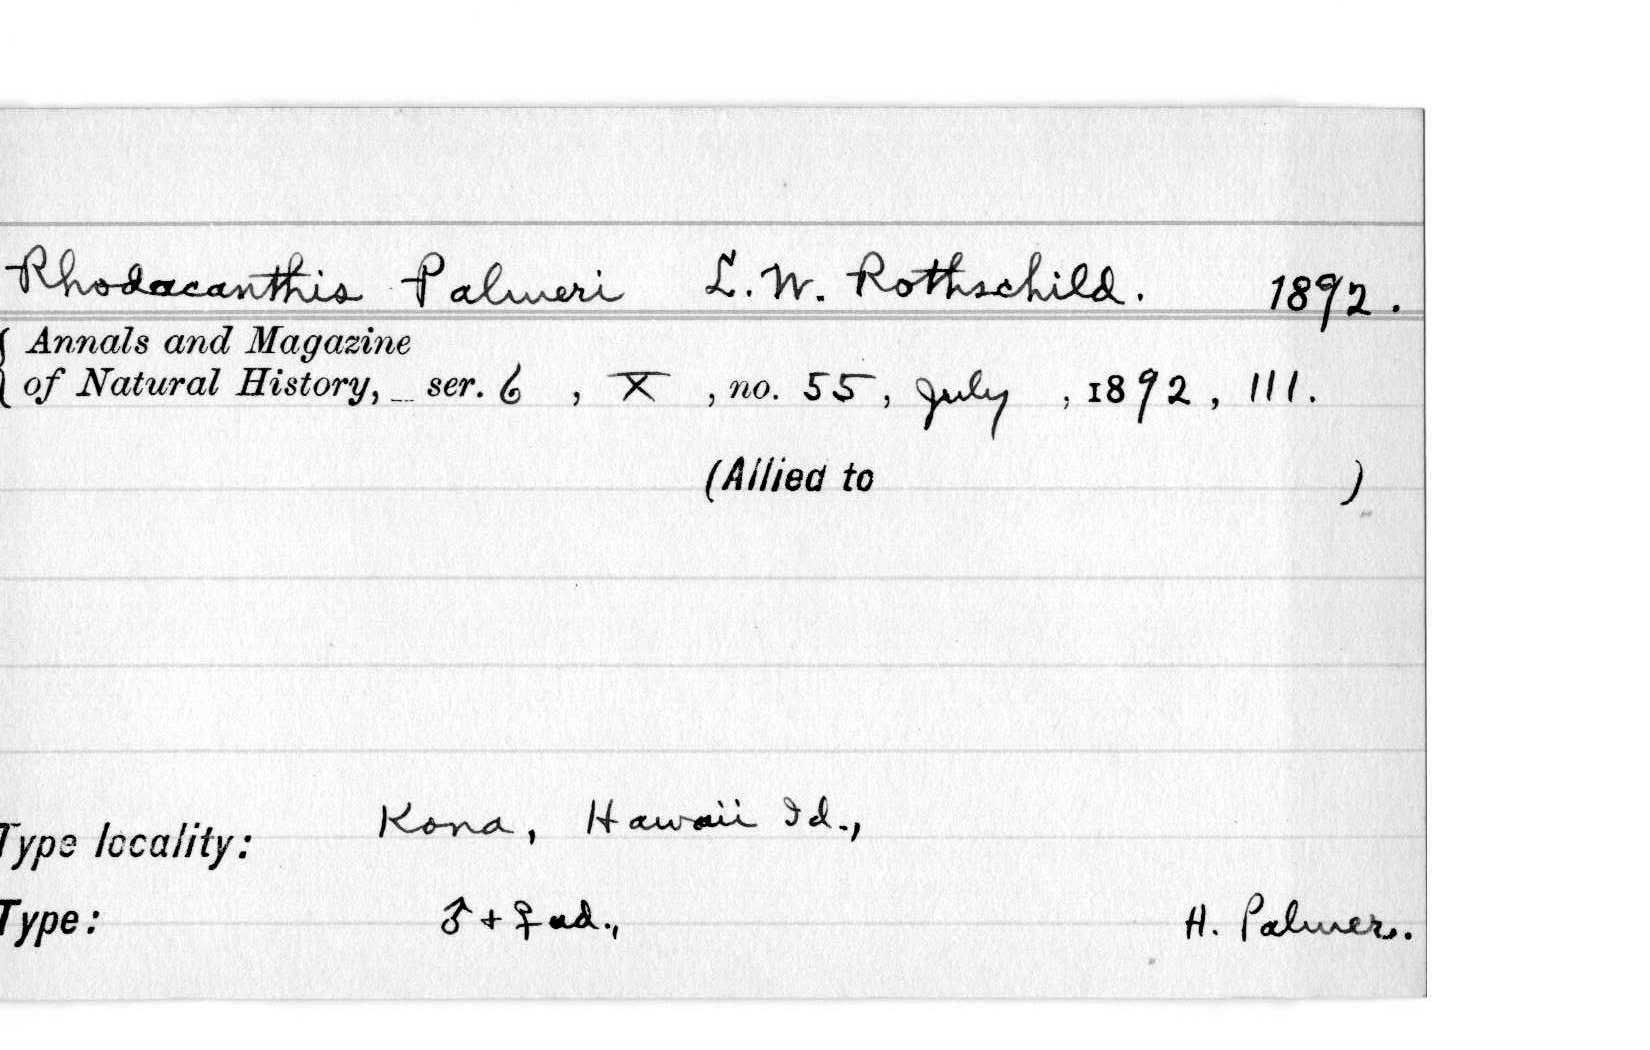 Rhodacanthis Palmeri L. W. Rothschild. 1892.
Annals and Magazine
of Natural History, ser. 6, X, no. 55, July, 1892, 111.
(Allied to )
Type locality: Kona, Hawaii Id.,
Type: ♂ + ♀ ad., H. Palmer.